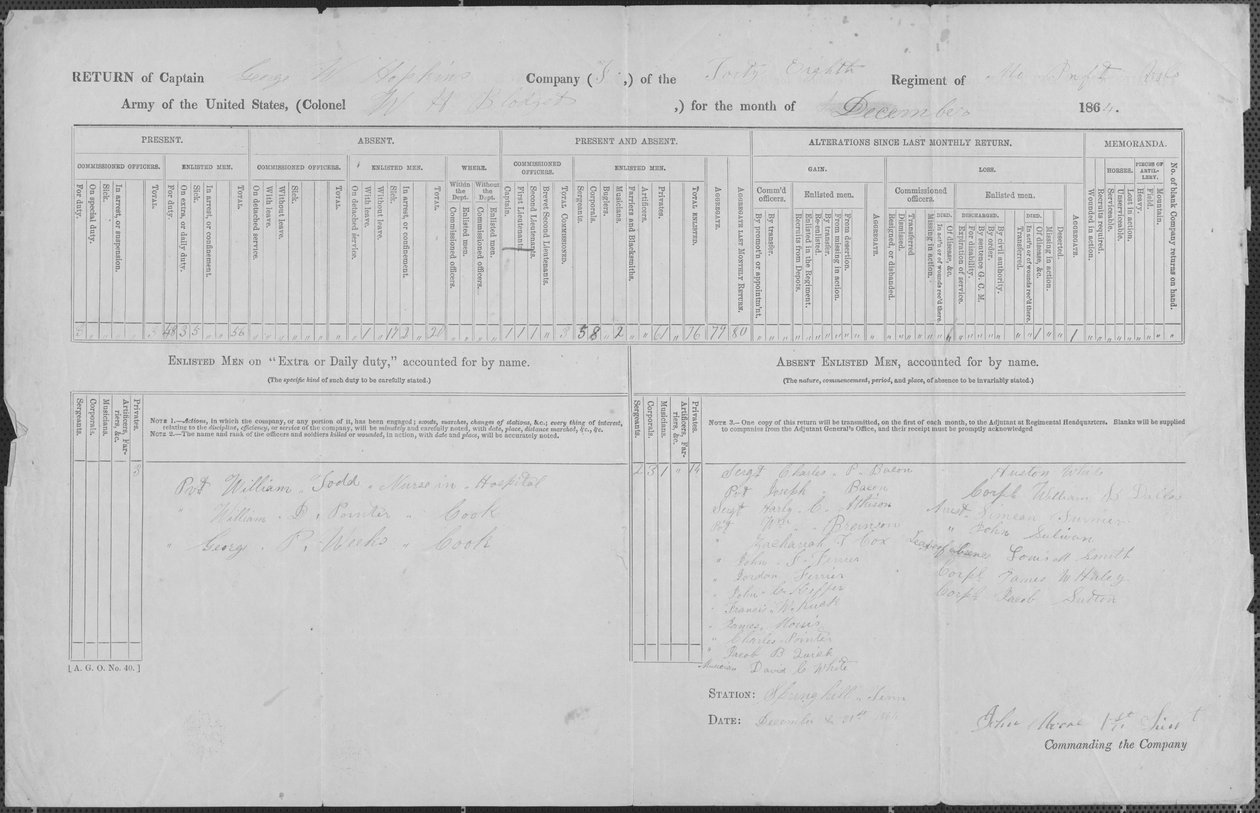 RETURN of Captain George W Hopkins Company ( ,) of the Forty Eighth Regiment of Mo Inft Vols
Army of the United States, (Colonel W H Blodget ,) for the month of December 1864.
PRESENT. ABSENT. PRESENT AND ABSENT. ALTERATIONS SINCE LAST MONTHLY RETURN. MEMORANDA.
COMMISSIONED OFFICERS. ENLISTED MEN. COMMISSIONED OFFICERS. ENLISTED MEN. WHERE. COMMISSIONED OFFICERS. ENLISTED MEN. GAIN. LOSS. HORSES. PIECES OF ARTILLERY.
Within the Dept. Without the Dept. Comm'd officers. Enlisted men. Commissioned officers. Enlisted men.
DIED. DISCHARGED. DIED.
For duty. On special duty. Sick. In arrest, or suspension. TOTAL. For duty. On extra, or daily duty. Sick. In arrest, or confinement. TOTAL. On detached service. With leave. Without leave. Sick. TOTAL. On detached service. With leave. Without leave. Sick. In arrest, or confinement. TOTAL. Commissioned officers. Enlisted men. Commissioned officers. Enlisted men. Captain. First Lieutenant. Second Lieutenants. Brevet Second Lieutenants. TOTAL COMMISSIONED. Sergeants. Corporals. Buglers. Musicians. Farriers and Blacksmiths. Artificers. Privates. TOTAL ENLISTED. AGGREGATE. AGGREGATE LAST MONTHLY RETURN. By promot'n or appointm'nt. By transfer. Recruits from Depots. Enlisted in the Regiment. Re-enlisted. By transfer. From missing in action. From desertion. AGGREGATE. Resigned, or disbanded. Dismissed. Transferred Missing in action. In act'n or of wounds rec'd there. Of disease, &c. Expiration of service. For disability. By sentence G. C. M. By order. By civil authority. Transferred. In act'n or of wounds rec'd there. Of disease, &c. Missing in action. Deserted. AGGREGATE. Wounded in action. Recruits required. Serviceable. Unserviceable. Lost in action. Heavy. Field. Mountain. No. of blank Company returns on hand.
3 " " " 3 48 3 5 " 56 " " " " " " 1 " 17 2 20 " " " " 1 1 1 " 3 5 8 " 2 " " 61 76 79 80 " " " " " " " " " " " " " " " " " " " " " " 1 " " 1 " " " " " " " " "
ENLISTED MEN ON "EXTRA OR DAILY DUTY," accounted for by name. ABSENT ENLISTED MEN, accounted for by name.
(The specific kind of such duty to be carefully stated.) (The nature, commencement, period, and place, of absence to be invariably stated.)
Sergeants. Corporals. Musicians. Artificers, Farriers, &c. Privates.
NOTE 1.—Actions, in which the company, or any portion of it, has been engaged; scouts, marches, changes of stations, &c.; every thing of interest, relating to the discipline, efficiency, or service of the company, will be minutely and carefully noted, with date, place, distance marched, &c., &c.
NOTE 2.—The name and rank of the officers and soldiers killed or wounded, in action, with date and place, will be accurately noted.
3
Pvt William Todd " Nurse in Hospital
" William D. Pointer " Cook
" George P. Weeks " Cook
[A. G. O. No. 40.]
Sergeants. Corporals. Musicians. Artificers, Farriers, &c. Privates.
NOTE 3.—One copy of this return will be transmitted, on the first of each month, to the Adjutant at Regimental Headquarters. Blanks will be supplied to companies from the Adjutant General's Office, and their receipt must be promptly acknowledged
2 3 1 " 14
Sergt Charles P. Bacon
Pvt Joseph Bacon
Sergt Harly C. Atkison
Pvt Wm Bronson
" Zachariah T Cox
" John S Ferrier
" Jordan Ferrier
" John C Keffer
" Francis W Rush
" James
" Charles Pointer
" Jacob B
Musician David C White
Auston White
Corpl William S
Arrest Simean
" John Sulivan
Louis M Smith
Corpl James W Haley
Corpl Jacob Sutton
STATION: Springhill Tenn
DATE: December 31st 1864
John Moore 1st Lieut
Commanding the Company